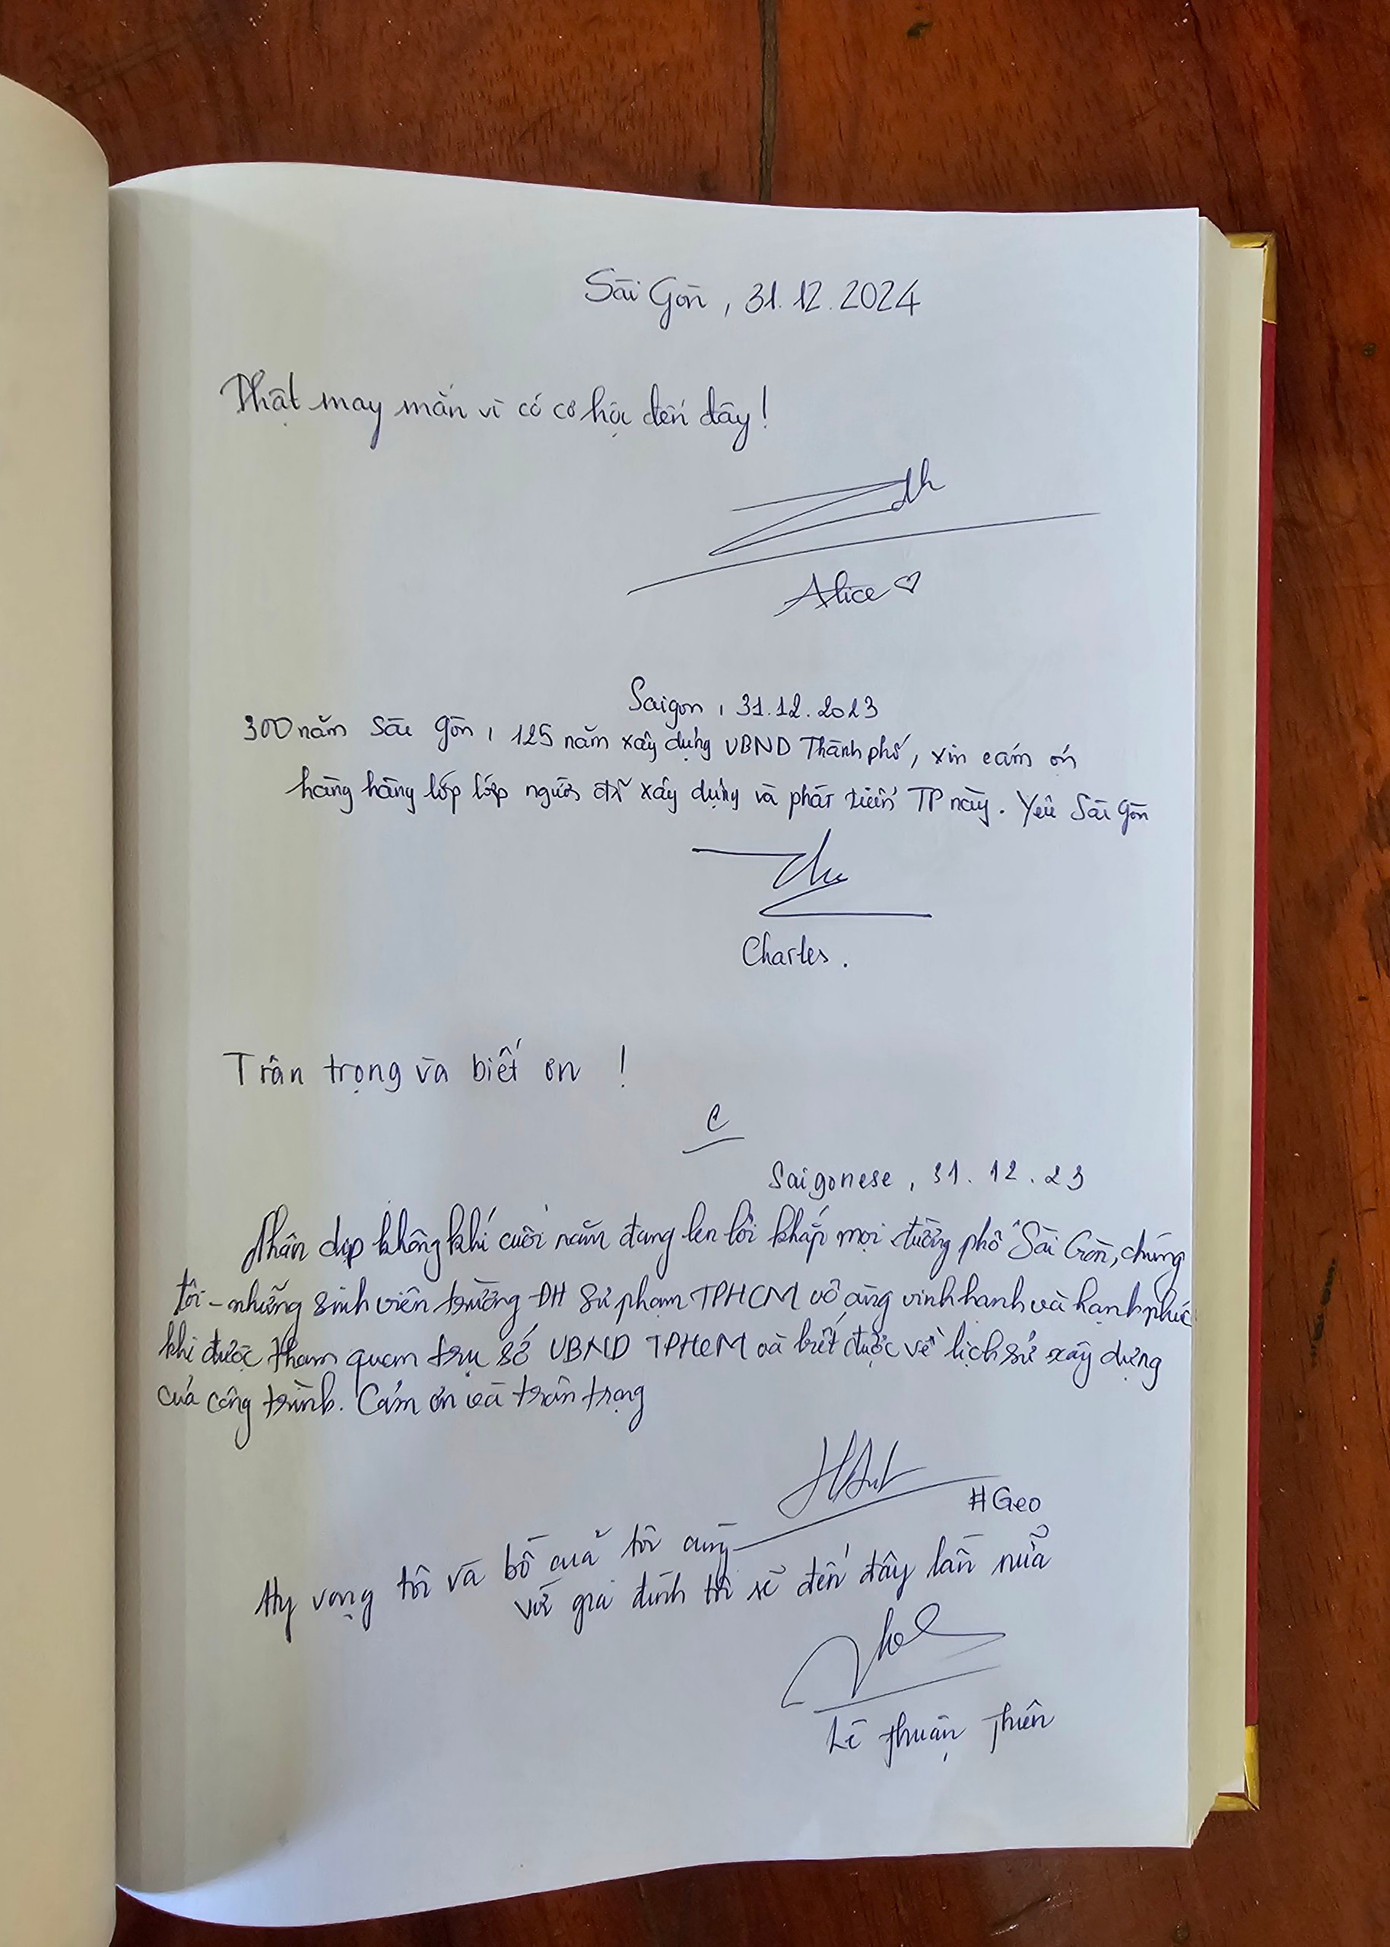 Sài Gòn, 31.12.2024
Thật may mắn vì có cơ hội đến đây!
Alice
Saigon, 31.12.2023
300 năm Sài Gòn, 125 năm xây dựng UBND Thành phố, xin cám ơn
hàng hàng lớp lớp người đã xây dựng và phát triển TP này. Yêu Sài Gòn
Charles.
Trân trọng và biết ơn !
C
Saigonese, 31.12.23
Nhân dịp không khí cuối năm đang len lỏi khắp mọi đường phố Sài Gòn, chúng
tôi - những sinh viên trường ĐH Sư phạm TPHCM vô cùng vinh hạnh và hạnh phúc
khi được tham quan trụ sở UBND TPHCM và biết được về lịch sử xây dựng
của công trình. Cảm ơn và trân trọng
#Geo
Hy vọng tôi và bố của tôi cùng
với gia đình thì sẽ đến đây lần nữa
Lê Thuận Thiên